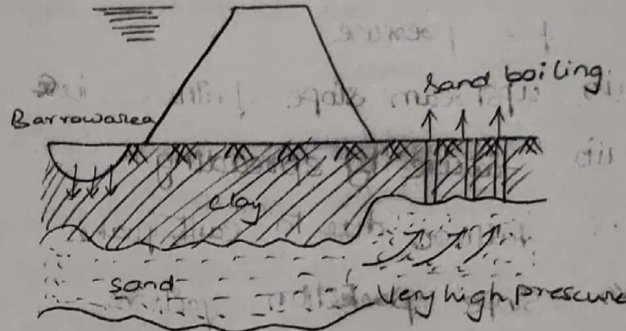 sand boiling
Barrowarea
clay
sand
Very high pressure